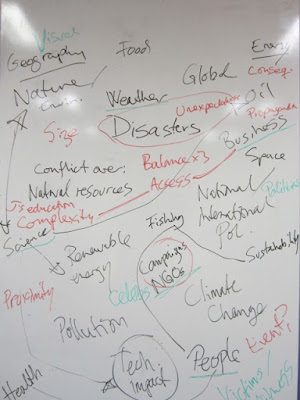 Visual
Geography
Food
Energy
Nature
Environ.
Weather
Global
Conseq.
Size
Disasters
Unexpected
Oil
Propaganda
Business
Conflict over:
Natural resources
Balance x3
Access
Space
J's education
Complexity
Science
National/
International
Pol.
Politics
Fishing
Sustainability
Renewable
energy
Campaigns
NGOs
Celebs
Climate
Change
Proximity
Pollution
Tech
impact
People
Event?
Health
Victims/